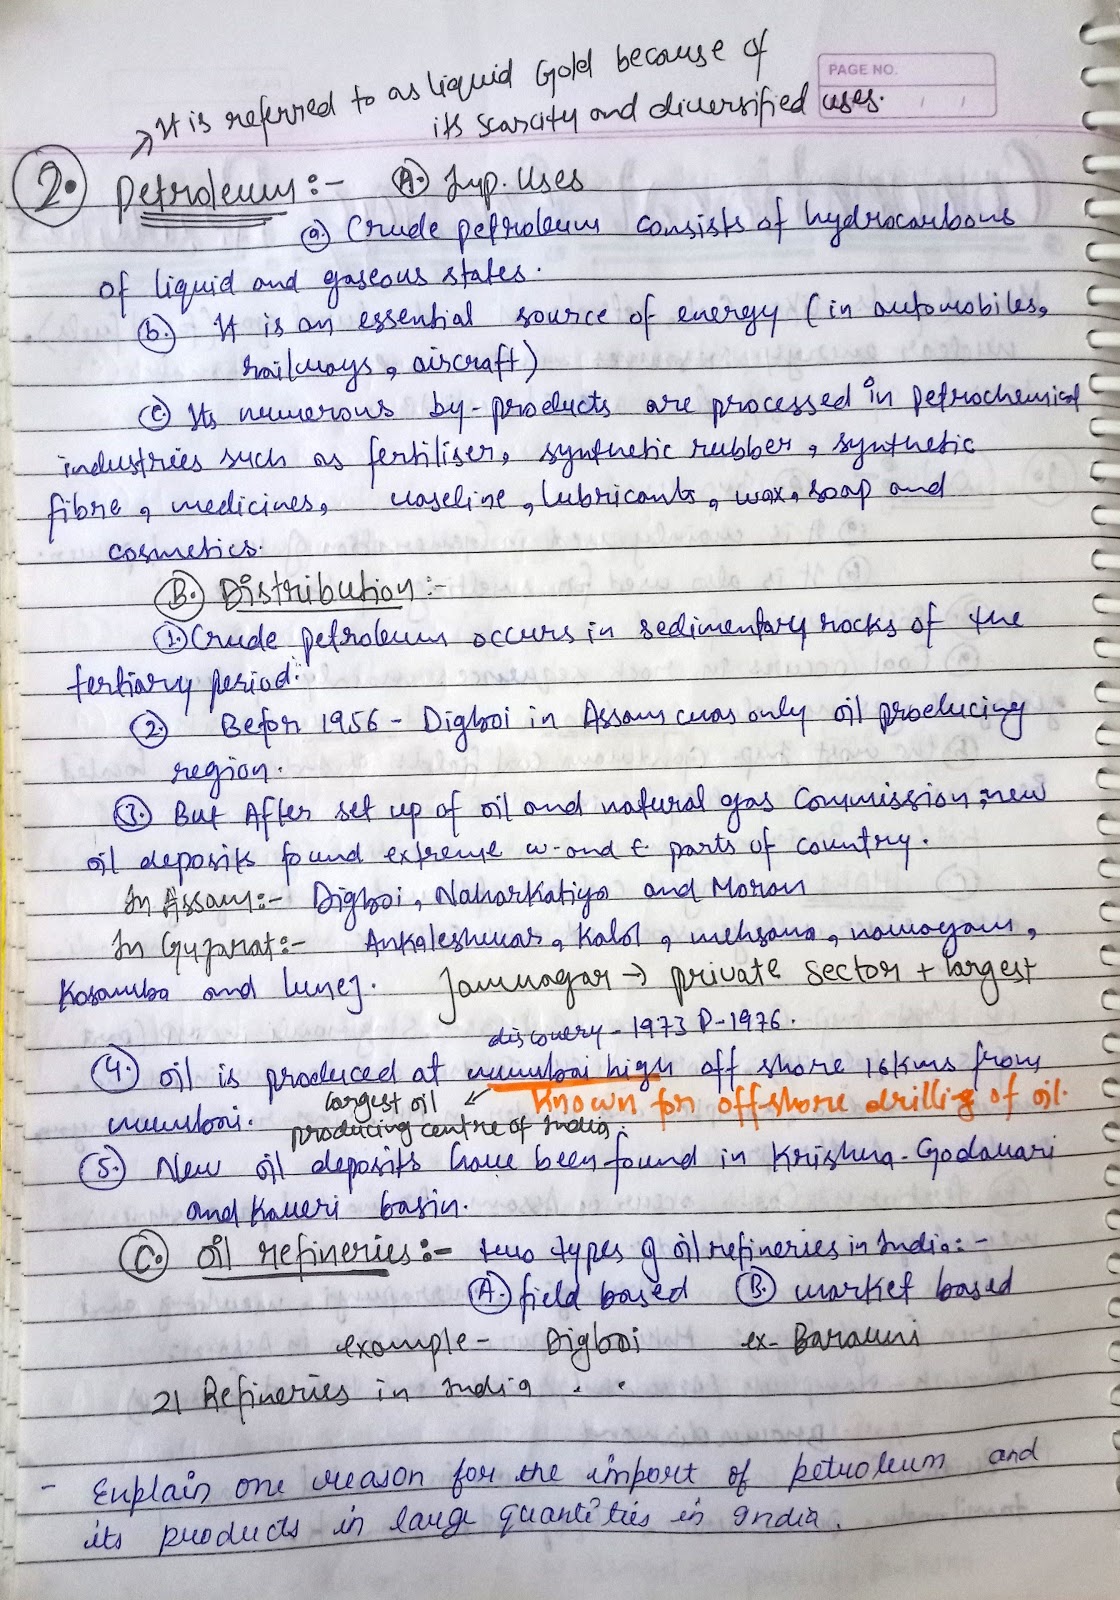 PAGE NO.
It is referred to as liquid Gold because of
its scarcity and diversified uses.
2. Petroleum :- A. Imp. Uses
a) Crude petroleum consists of hydrocarbons
of liquid and gaseous states.
b. It is an essential source of energy (in automobiles,
railways, aircraft)
c) Its numerous by-products are processed in petrochemical
industries such as fertiliser, synthetic rubber, synthetic
fibre, medicines, vaseline, lubricants, wax, soap and
cosmetics.
B. Distribution :-
1. Crude petroleum occurs in sedimentary rocks of the
tertiary period.
2. Befor 1956 - Digboi in Assam was only oil producing
region.
3. But After set up of oil and natural gas Commission, new
oil deposits found extreme w. and E parts of country.
In Assam :- Digboi, Naharkatiya and Moran
In Gujarat :- Ankaleshwar, Kalol, mehsana, nawagam,
Kosamba and lunej. Jamnagar → private sector + largest
discovery - 1973 P-1976.
4. oil is produced at mumbai high off shore 16kms from
largest oil Known for off-shore drilling of oil.
mumbai. producing centre of India.
5. New oil deposits have been found in Krishna-Godavari
and Kaveri basin.
C. Oil refineries :- two types of oil refineries in India :-
A. field based B. market based
example - Digboi ex- Barauni
21 Refineries in India . .
- Explain one reason for the import of petroleum and
its products in large quantities in India.